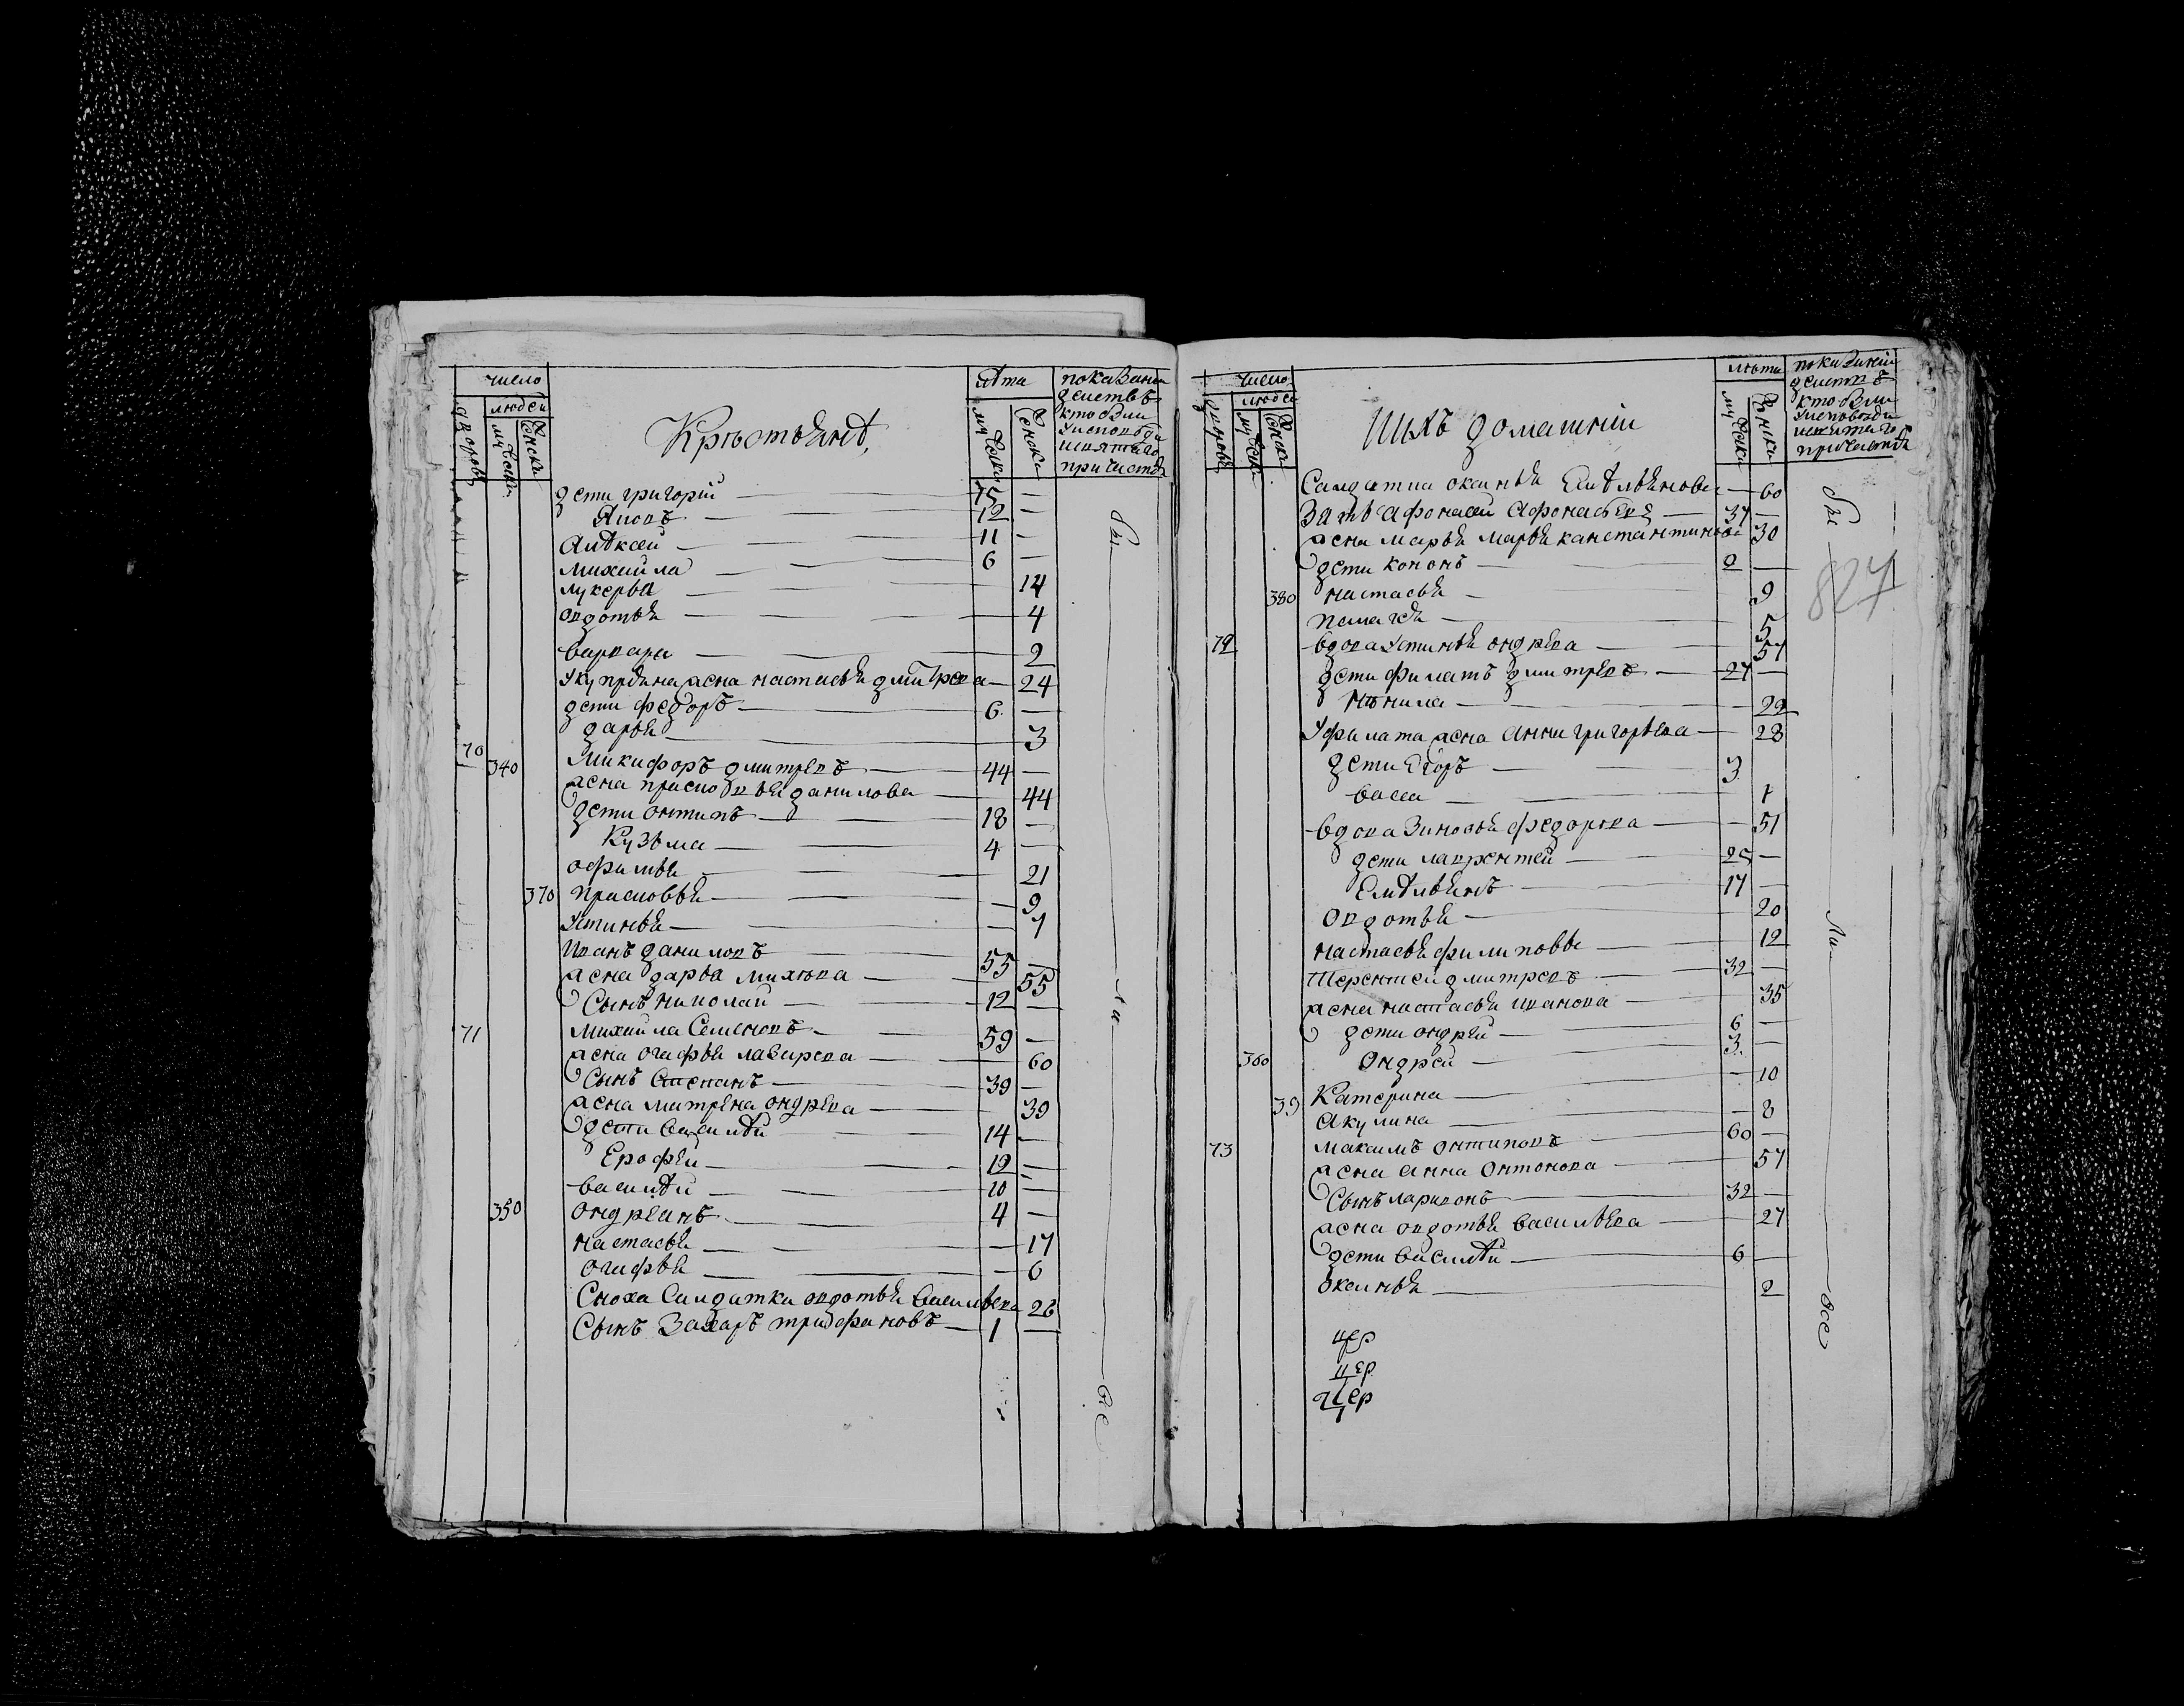 число
людей
дворовъ
муческ
женска
Крѣстьянѣ
лѣта
муческ
женска
показани
действъ
кто был
у исповѣди
и святаго
причастия
дети григорий — 15 —
Яковъ — 12 —
Алѣксей — 11 —
михайла — 6 —
лукерья — 14
овдотья — 4
варвара — 2
У купрѣяна жена настасья дмитрева — 24
дети федоръ — 6 —
дарья — 3
70 340 Микифоръ дмитревъ — 44 —
жена прасковья данилова — 44
дети онтипъ — 18 —
Кузьма — 4 —
офимья — 21
370 прасковья — 9
устинья — 1
иванъ даниловъ 55 —
жена дарья михѣева — 55
Сынъ николай — 12 —
71 михайла Семеновъ — 59 —
жена огафья лазарева — 60
Сынъ Степанъ — 39 —
жена матрена ондрѣева — 39
дети василѣй — 14 —
Ерофѣй — 12 —
василѣй — 10 —
350 ондреянъ — 4 —
настасья — 17
огафья — 6
Сноха Салдатка овдотья васильева 26
Сынъ Захаръ трифановъ — 1 —
бы
ли
все
число
людей
дворовъ
муческ
женска
Ихъ домашнии
лѣта
муческ
женска
показаний
действъ
кто был
у исповѣди
и святаго
причастия
827
Салдатка оксинья Емѣльянова — 60
Зять афонасей Афонасьевъ — 37 —
жена марья марья канстантинова 30
дети кононъ — 2 —
380 настасья — 9
пелагея — 5
72 вдова устинья ондрѣева — 57
дети филатъ дмитревъ — 27 —
ненила — 22
У филата жена анна григорьева — 28
дети Егоръ — 3
васса — 1
вдова Зиновья федорова — 51
дети лаврентей — 25 —
Емѣльянъ — 17 —
овдотья — 20
настасья филиповы — 12
Терентей дмитревъ — 32 —
жена настасья иванова — 35
дети ондрѣй — 6 —
360 Ондрей — 3 —
Катерина — 10
39 акулина — 8
73 макаимъ онтиповъ — 60 —
жена анна онтонова — 57
Сынъ ларивонъ — 32 —
жена овдотья васильева — 27
дети василѣй — 6 —
оксинья — 2
цер
цер
цер
бы
ли
все